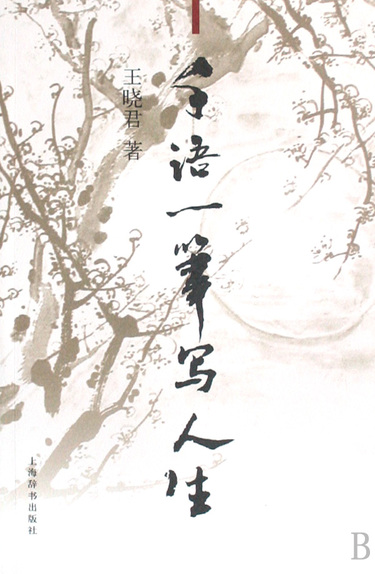 千语一筆写人生
王晓君 著
上海辞书出版社
B